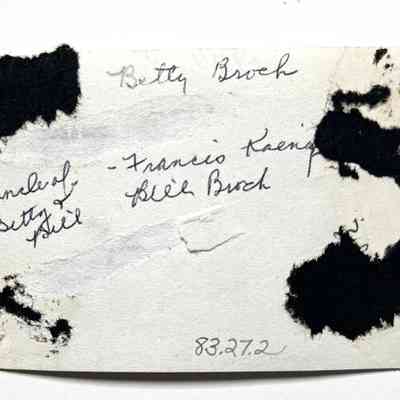 Betty Broch
uncle of
Betty &
Bill
- Francis Koenig
Bill Broch
83.27.2